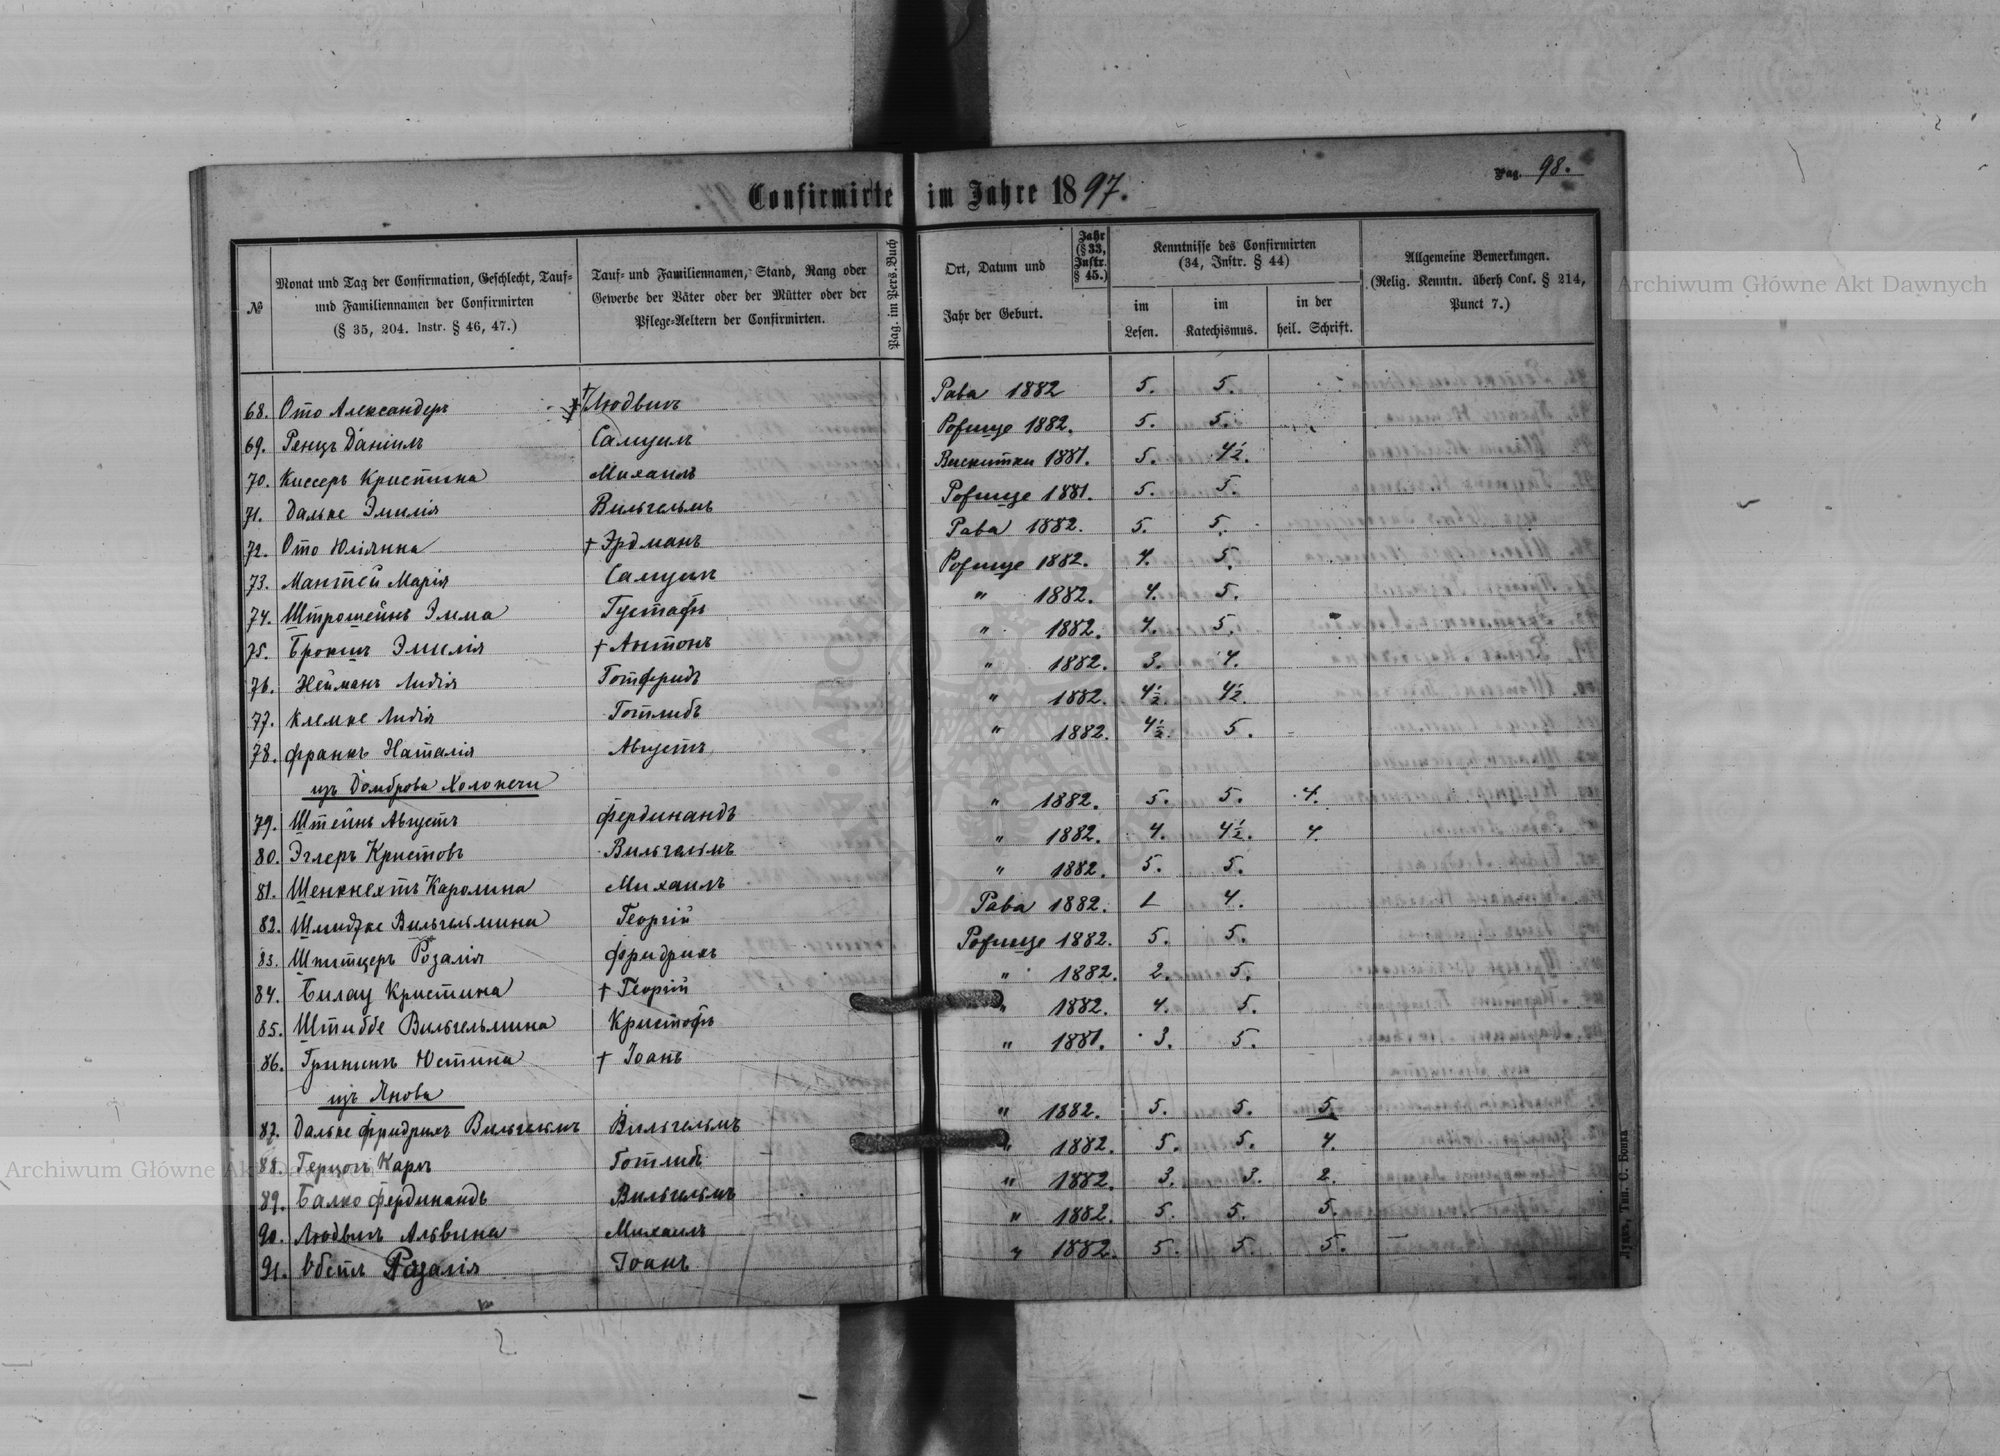 Pag. 98.
Confirmirte im Jahre 1897.
№
Monat und Tag der Confirmation, Geschlecht, Tauf-
und Familiennamen der Confirmirten
(§ 35, 204. Instr. § 46, 47.)
Tauf- und Familiennamen, Stand, Rang oder
Gewerbe der Väter oder der Mütter oder der
Pflege-Aeltern der Confirmirten.
Pag. im Pers. Buch
Ort, Datum und
Jahr der Geburt.
Jahr
(§ 33,
Instr.
§ 45.)
Kenntnisse des Confirmirten
(34, Instr. § 44)
im
Lesen.
im
Katechismus.
in der
heil. Schrift.
Allgemeine Bemerkungen.
(Relig. Kenntn. überh Conf. § 214,
Punct 7.)
68. Ото Александеръ † Людвигъ Рава 1882 5. 5.
69. Ренцъ Данiилъ Самуилъ Рофище 1882. 5. 5.
70. Киссеръ Кристина Михаилъ Вискитки 1881. 5. 4½.
71. Дальке Эмилiя Вильгельмъ Рофище 1881. 5. 5.
72. Ото Юлiянна † Эрдманъ Рава 1882. 5. 5.
73. Мантей Марiя Самуилъ Рофище 1882. 4. 5.
74. Штрошейнъ Эмма Густафъ " 1882. 4. 5.
75. Брокшъ Эмилiя † Антонъ " 1882. 4. 5.
76. Нейманъ Лидiя Готфридъ " 1882. 3. 4.
77. Клемке Лидiя Готлибъ " 1882. 4½. 4½.
78. Франкъ Наталiя Августъ " 1882. 4½. 5.
изъ Домброва Холопечи
79. Штейнъ Августъ Фердинандъ " 1882. 5. 5. 4.
80. Эглеръ Кристовъ Вильгельмъ " 1882. 4. 4½. 4.
81. Шенкнехтъ Каролина Михаилъ " 1882. 5. 5.
82. Шмидтке Вильгельмина Георгiй Рава 1882. 1 4.
83. Шпитцеръ Розалiя Фридрихъ Рофище 1882. 5. 5.
84. Билау Кристина † Георгiй " 1882. 2. 5.
85. Штиббе Вильгельмина Кристофъ " 1882. 4. 5.
86. Юстина † Iоанъ " 1881. 3. 5.
изъ Янова
87. Дальке Фридрихъ Вильгельмъ Вильгельмъ " 1882. 5. 5. 5.
88. Герцогъ Карлъ Готлибъ " 1882. 5. 5. 4.
89. Балко Фердинандъ Вильгельмъ " 1882. 3. 3. 2.
90. Людвигъ Альвина Михаилъ " 1882. 5. 5. 5.
91. Розалiя Iоанъ " 1882. 5. 5. 5.
Луцкъ, Тип. С. Бонка
Archiwum Główne Akt Dawnych
Archiwum Główne Akt Dawnych